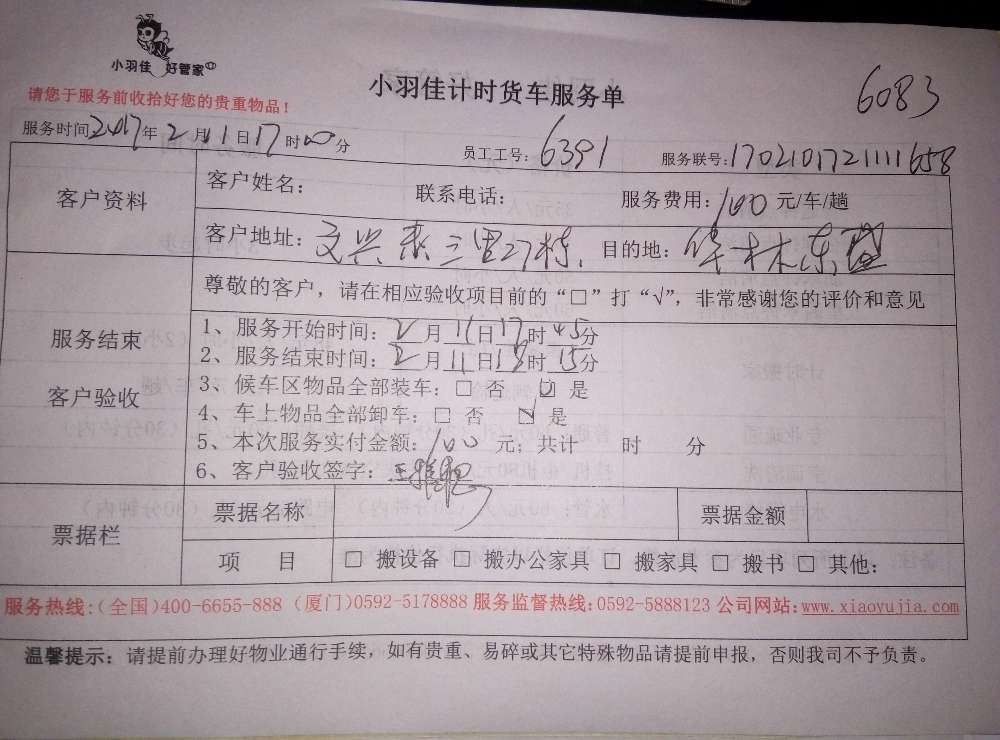 小羽佳 好管家
小羽佳计时货车服务单
6083
请您于服务前收拾好您的贵重物品！
服务时间2017年2月11日17时00分
员工工号：6391
服务联号：1702101721111658
客户资料
客户姓名： 联系电话： 服务费用：100元/车/趟
客户地址：文兴东三里27栋. 目的地：华林东盛
服务结束
客户验收
尊敬的客户，请在相应验收项目前的“□”打“√”，非常感谢您的评价和意见
1、服务开始时间：2月11日17时45分
2、服务结束时间：2月11日18时15分
3、候车区物品全部装车：□ 否 ☑ 是
4、车上物品全部卸车：□ 否 ☑ 是
5、本次服务实付金额：100元；共计 时 分
6、客户验收签字：王
票据栏
票据名称 票据金额
项 目 □ 搬设备 □ 搬办公家具 □ 搬家具 □ 搬书 □ 其他：
服务热线：(全国)400-6655-888 (厦门)0592-5178888 服务监督热线：0592-5888123 公司网站：www.xiaoyujia.com
温馨提示：请提前办理好物业通行手续，如有贵重、易碎或其它特殊物品请提前申报，否则我司不予负责。